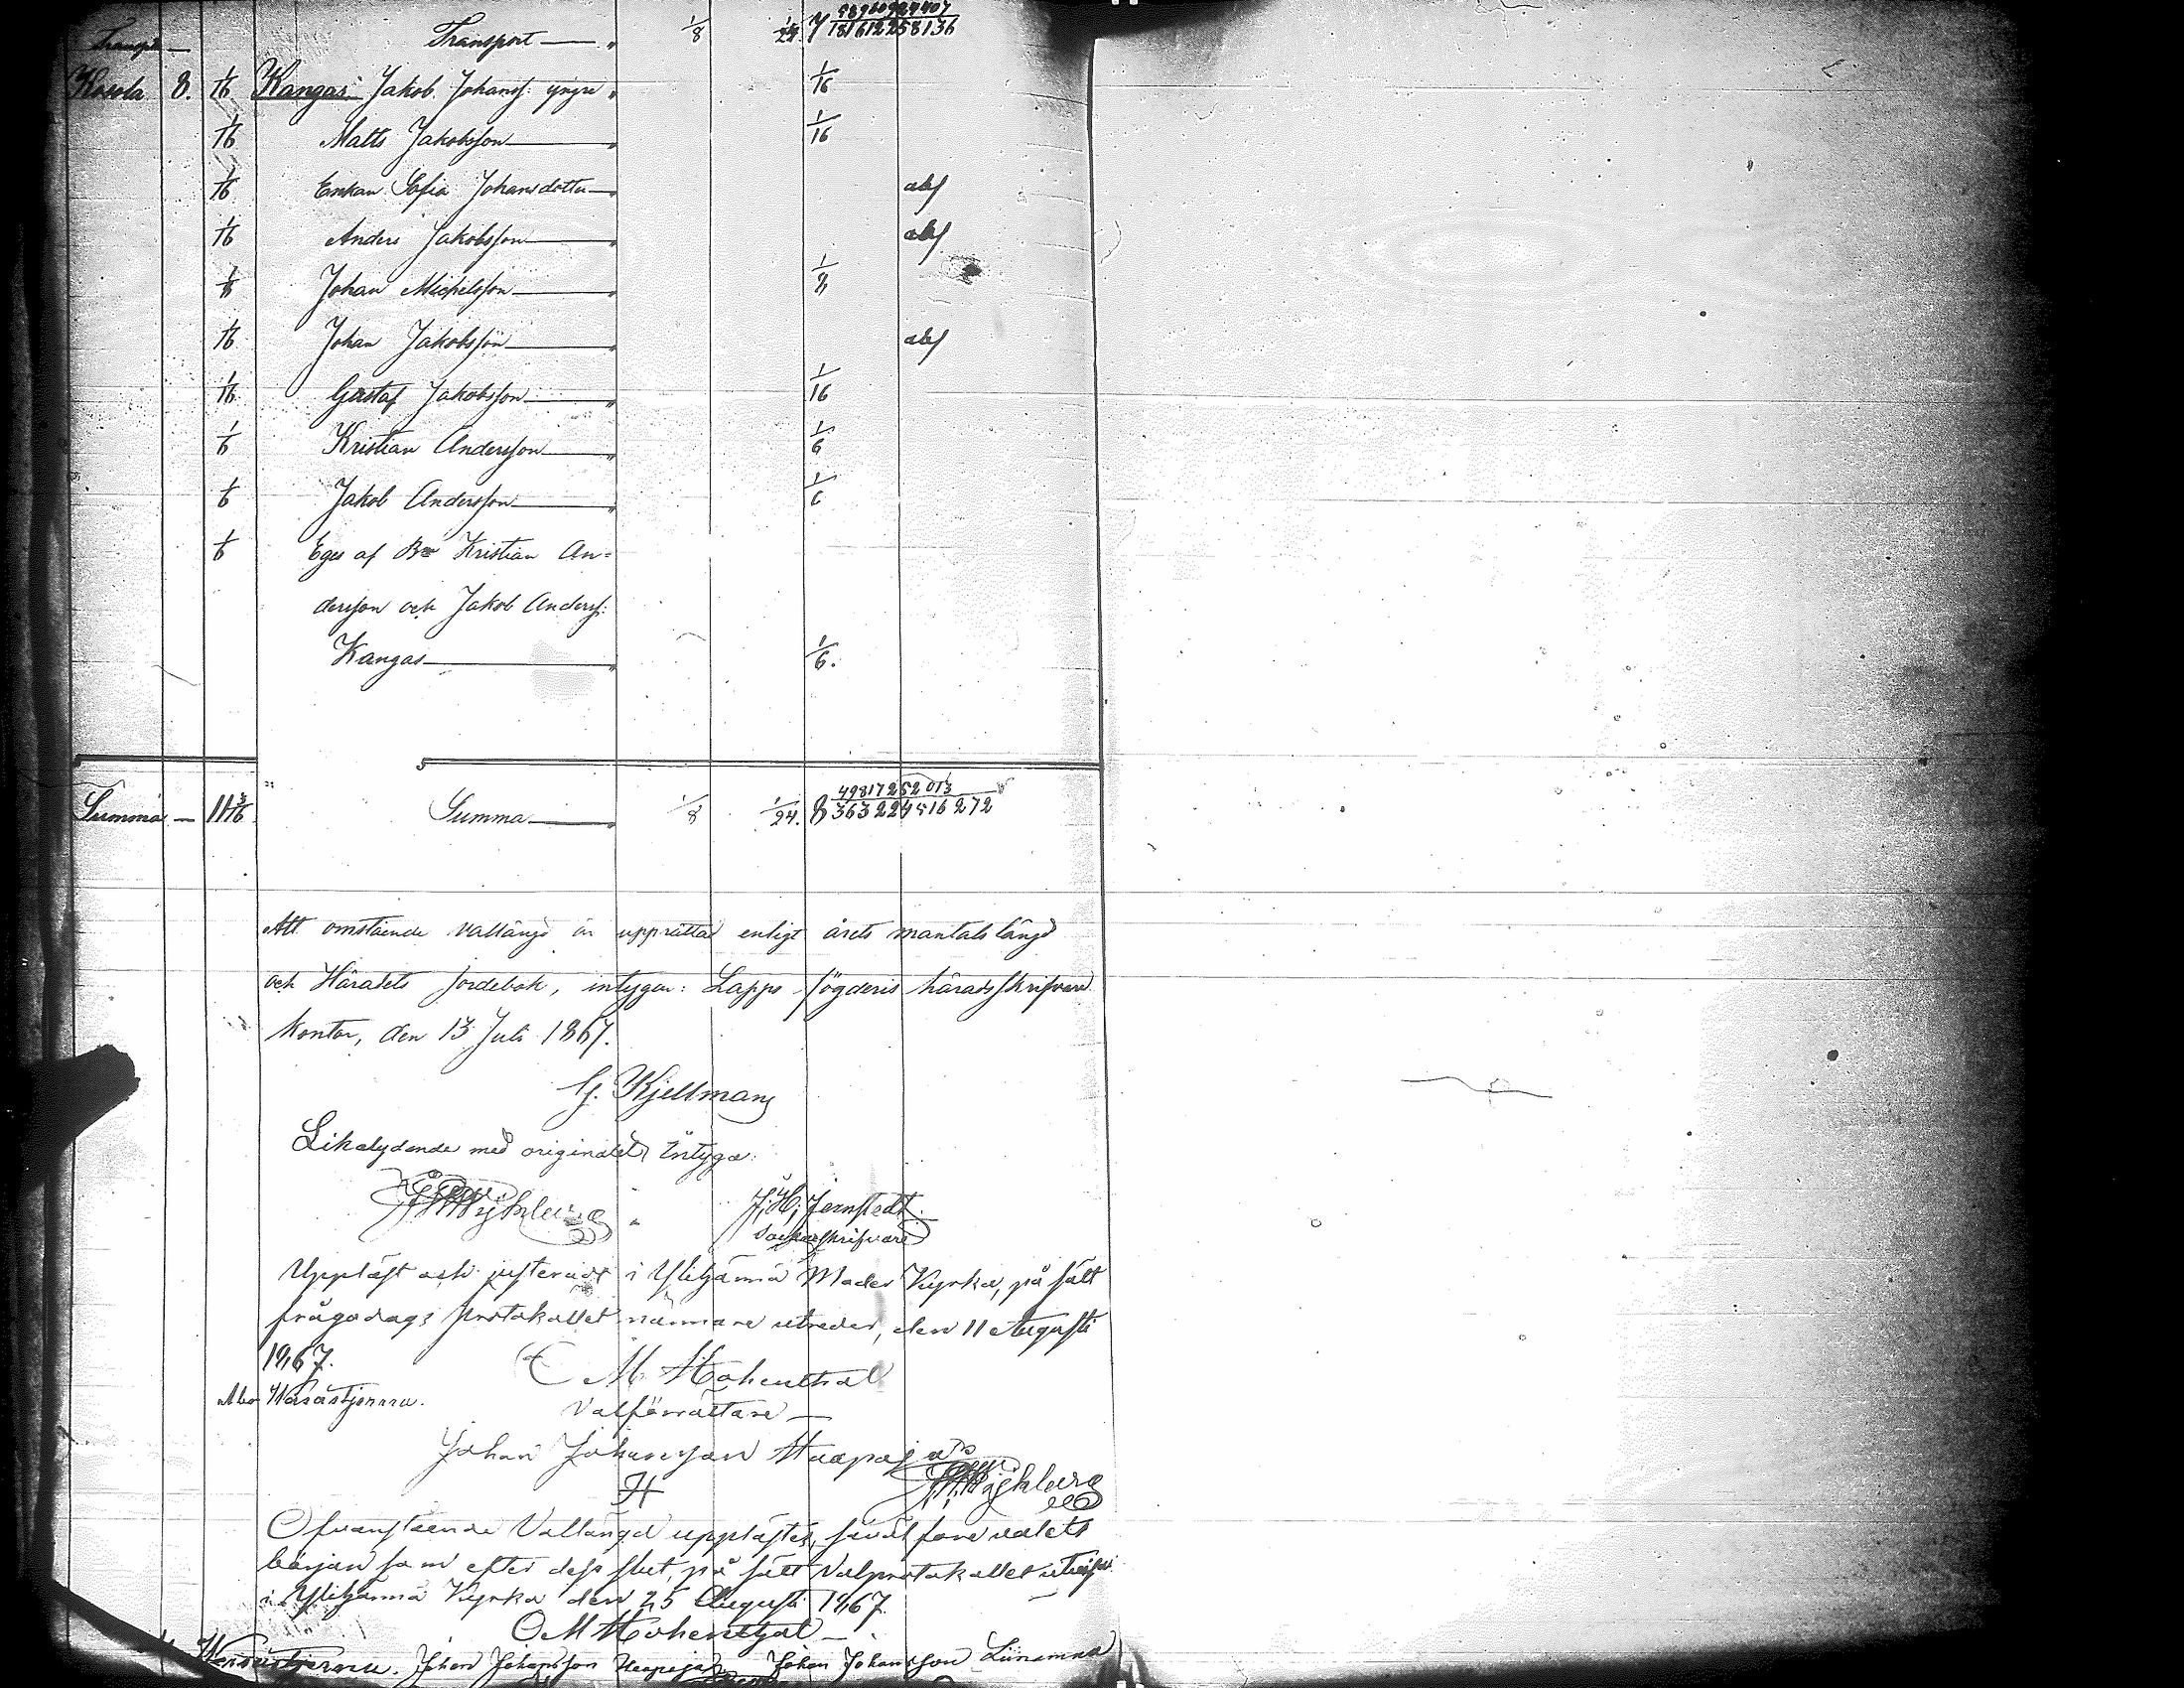 Transport — Transport — " 1/8 1/24. 7 98960924407/181612258136
Kosola 8. 1/16 Kangas Jakob Johanss: yngre " 1/16
1/16 Matts Jakobsson — " 1/16
1/16 Enkan Sofia Johansdotter — " abs
1/16 Anders Jakobsson — " abs
1/8 Johan Michelsson — " 1/8
1/16 Johan Jakobsson — " abs
1/16 Gustaf Jakobsson — " 1/16
1/6 Kristian Andersson — " 1/6
1/6 Jakob Andersson — " 1/6
1/6 Eges af Kristian An=
dersson och Jakob Anderss:
Kangas — " 1/6.
Summa — 11 3/16 Summa — " 1/8 1/24. 8 49817252013/363224516272
Att omstående vallängd är upprättad enligt årets mantalslängd
och Häradets jordebok, intygar: Lappo fögderis häradsskrifvare
kontor, den 13 Juli 1867.
G. Kjellman
Likalydande med originalet, intyga:
J. H. Jernstedt.
Sockneskrifvare
Uppläst och justerad i Ylihärmä Moder Kyrka, på sätt
frågodags protokollet närmare utreder, den 11 Augusti
1867.
O M Hohenthal
Wasastjerna.
Valförrättare —
Johan Johansson Haapoja
H
Ofvanstående Vallängd upplästes, såväl före valets
början som efter dess slut, på sätt Valprotokollet utvisar
i Ylihärmä Kyrka den 25 Augusti 1867.
O M Hohenthal — .
Wasastjerna. Johan Johansson Haapoja Johan Johansson Liinamaa